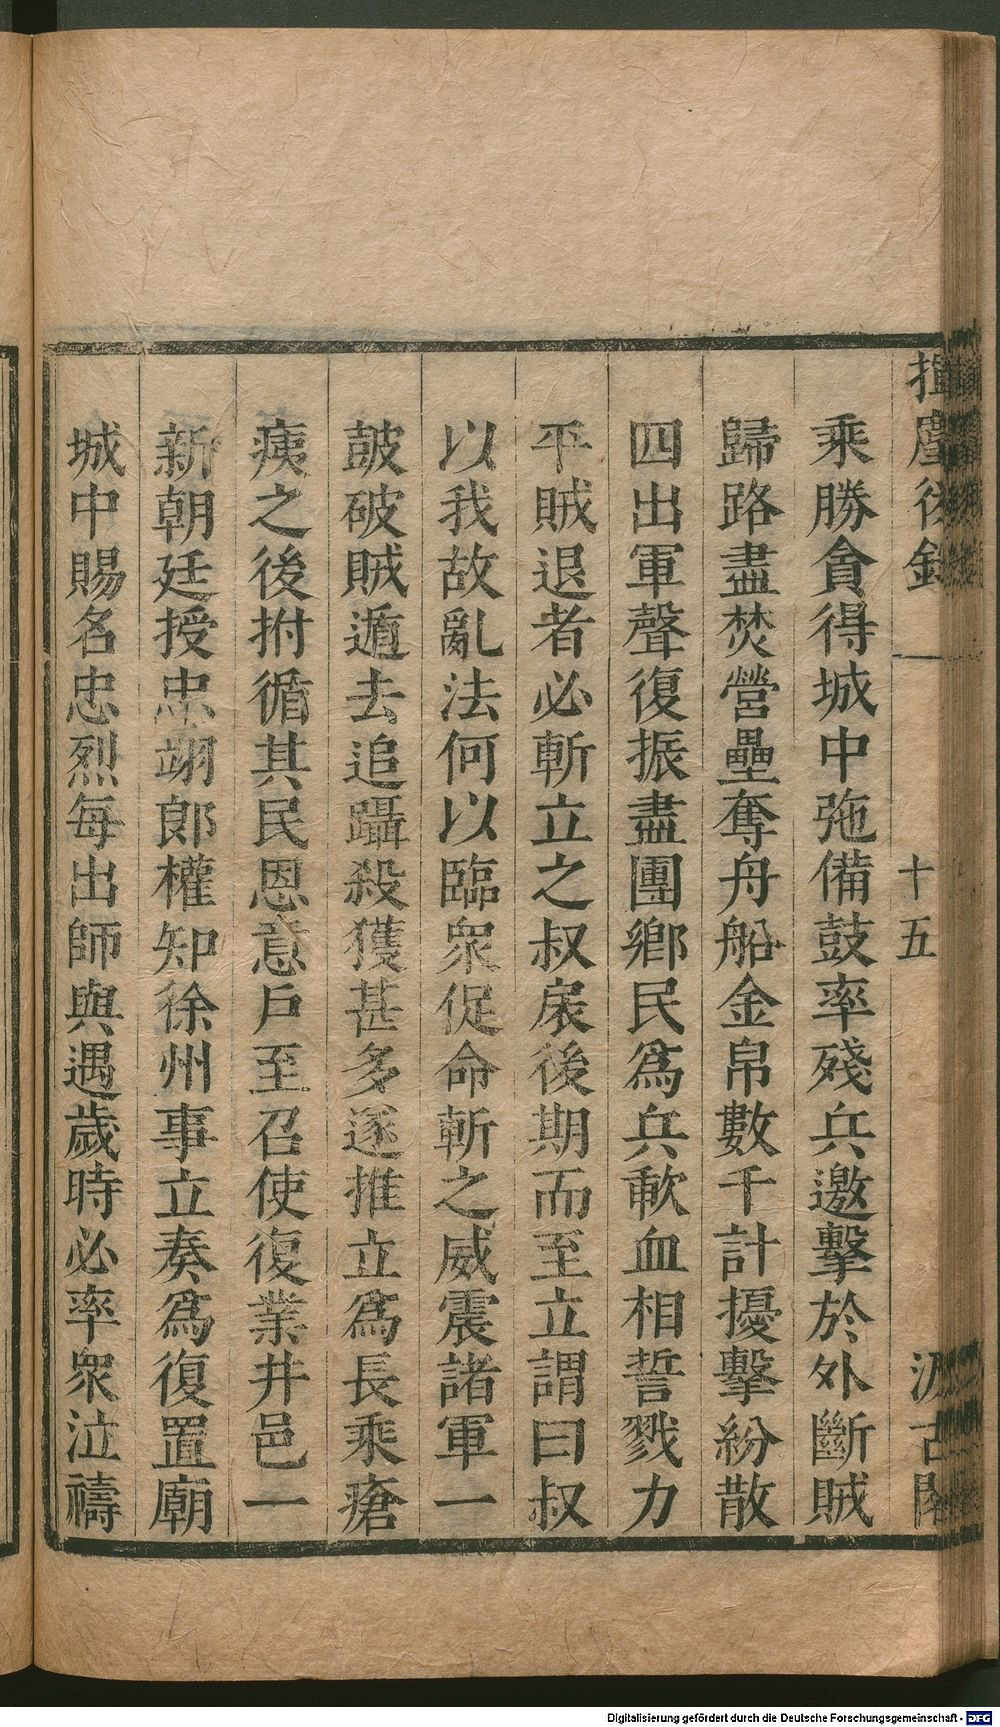 揮麈後錄
十五
汲古閣
乘勝貪得城中弛備鼓率殘兵邀擊於外斷賊
歸路盡焚營壘奪舟船金帛數千計擾擊紛散
四出軍聲復振盡團鄉民爲兵歃血相誓戮力
平賊退者必斬立之叔扆後期而至立謂曰叔
以我故亂法何以臨衆促命斬之威震諸軍一
皷破賊遁去追躡殺獲甚多遂推立爲長乘瘡
痍之後拊循其民恩意戶至召使復業井邑一
新朝廷授忠翊郎權知徐州事立奏爲復置廟
城中賜名忠烈每出師與遇歲時必率衆泣禱
Digitalisierung gefördert durch die Deutsche Forschungsgemeinschaft - DFG